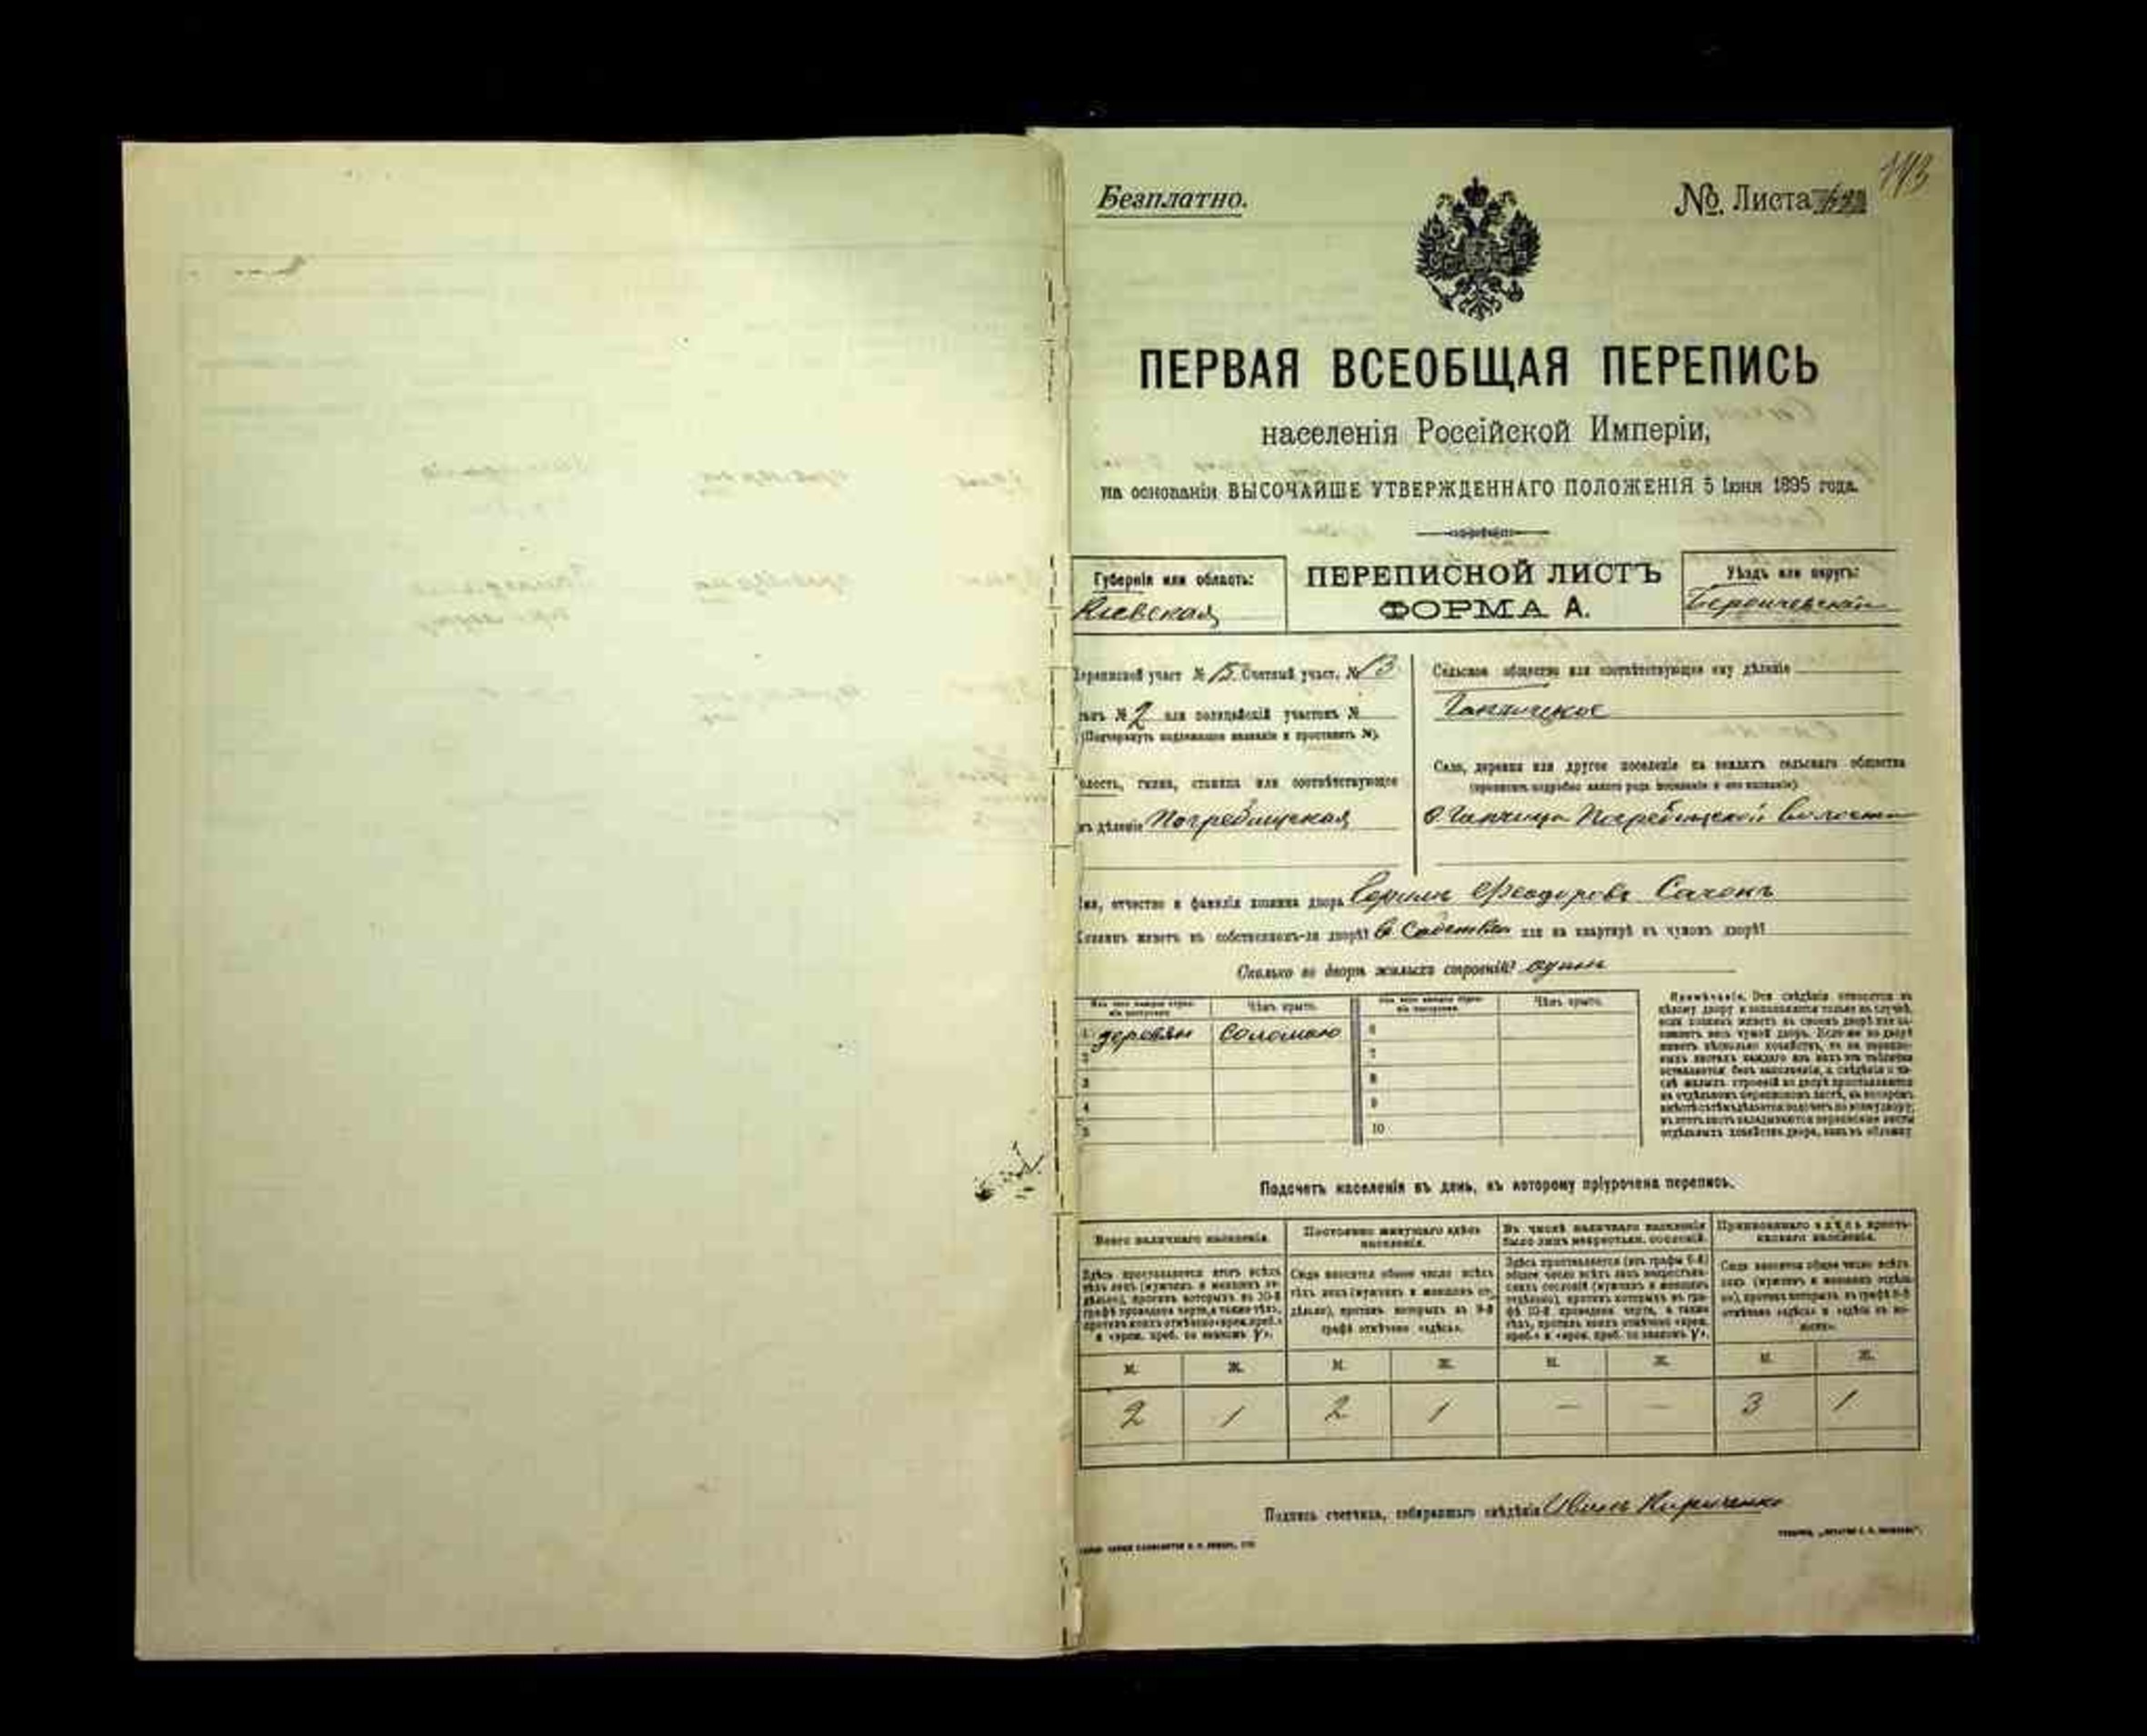 113
Безплатно.
№. Листа
ПЕРВАЯ ВСЕОБЩАЯ ПЕРЕПИСЬ
населенія Россійской Имперіи,
на основаніи ВЫСОЧАЙШЕ УТВЕРЖДЕННАГО ПОЛОЖЕНІЯ 5 Іюня 1895 года.
Губернія или область:
Кіевская
ПЕРЕПИСНОЙ ЛИСТЪ
ФОРМА А.
Уѣздъ или округъ:
Бердичевскій
Переписной участ. № 15 Счетный участ. № 13
Сельское общество или соотвѣтствующее ему дѣленіе
танъ № 2 или полицейскій участокъ №
(Подчеркнуть надлежащее названіе и проставить №).
олость, гмина, станица или соотвѣтствующее
мъ дѣленіе Погребищская
Село, деревня или другое поселеніе на земляхъ сельскаго общества
(прописать подробно какого рода поселеніе и его названіе).
Погребищской волости
мя, отчество и фамилія хозяина двора Феодоровъ Сачокъ
Хозяинъ живетъ въ собственномъ-ли дворѣ? или на квартирѣ въ чужомъ дворѣ?
Сколько во дворѣ жилыхъ строеній? одинъ
Чѣмъ крыто.
Чѣмъ крыто.
1 деревян Соломою 6
2 7
3 8
4 9
5 10
Примѣчаніе. Эти свѣдѣнія относятся къ
цѣлому двору и заполняются только въ случаѣ,
если хозяинъ живетъ въ своемъ дворѣ или за-
нимаетъ весь чужой дворъ. Если-же во дворѣ
живетъ нѣсколько хозяйствъ, то на перепис-
ныхъ листахъ каждаго изъ нихъ эта табличка
оставляется безъ заполненія, а свѣдѣнія о чи-
слѣ жилыхъ строеній во дворѣ проставляются
на отдѣльномъ переписномъ листѣ, на которомъ
вмѣстѣ съ тѣмъ дѣлается подсчетъ по всему двору;
въ этотъ листъ вкладываются переписные листы
отдѣльныхъ хозяйствъ двора, какъ въ обложку.
Подсчетъ населенія въ день, къ которому пріурочена перепись.
Всего наличнаго населенія.
Постоянно живущаго здѣсь населенія.
Въ числѣ наличнаго населенія было лицъ некрестьян. сословій.
Приписаннаго здѣсь кресть-янскаго населенія.
Здѣсь проставляется итогъ всѣхъ
тѣхъ лицъ (мужчинъ и женщинъ от-
дѣльно), противъ которыхъ въ 10-й
графѣ проведена черта, а также тѣхъ,
противъ коихъ отмѣчено «врем. преб.»
и «врем. преб. со знакомъ γ».
Сюда вносится общее число всѣхъ
тѣхъ лицъ (мужчинъ и женщинъ от-
дѣльно), противъ которыхъ въ 9-й
графѣ отмѣчено «здѣсь».
Здѣсь проставляется (изъ графы 6-й)
общее число всѣхъ лицъ некрестьян-
скихъ сословій (мужчинъ и женщинъ
отдѣльно), противъ которыхъ въ гра-
фѣ 10-й проведена черта, а также
тѣхъ, противъ коихъ отмѣчено «врем.
преб.» и «врем. преб. со знакомъ γ».
Сюда вносится общее число всѣхъ
лицъ (мужчинъ и женщинъ отдѣль-
но), противъ которыхъ въ графѣ 8-й
отмѣчено «здѣсь» и «здѣсь въ во-
лости».
М. Ж. М. Ж. М. Ж. М. Ж.
2 1 2 1 — — 3 1
Подпись счетчика, собиравшаго свѣдѣнія Кириченко